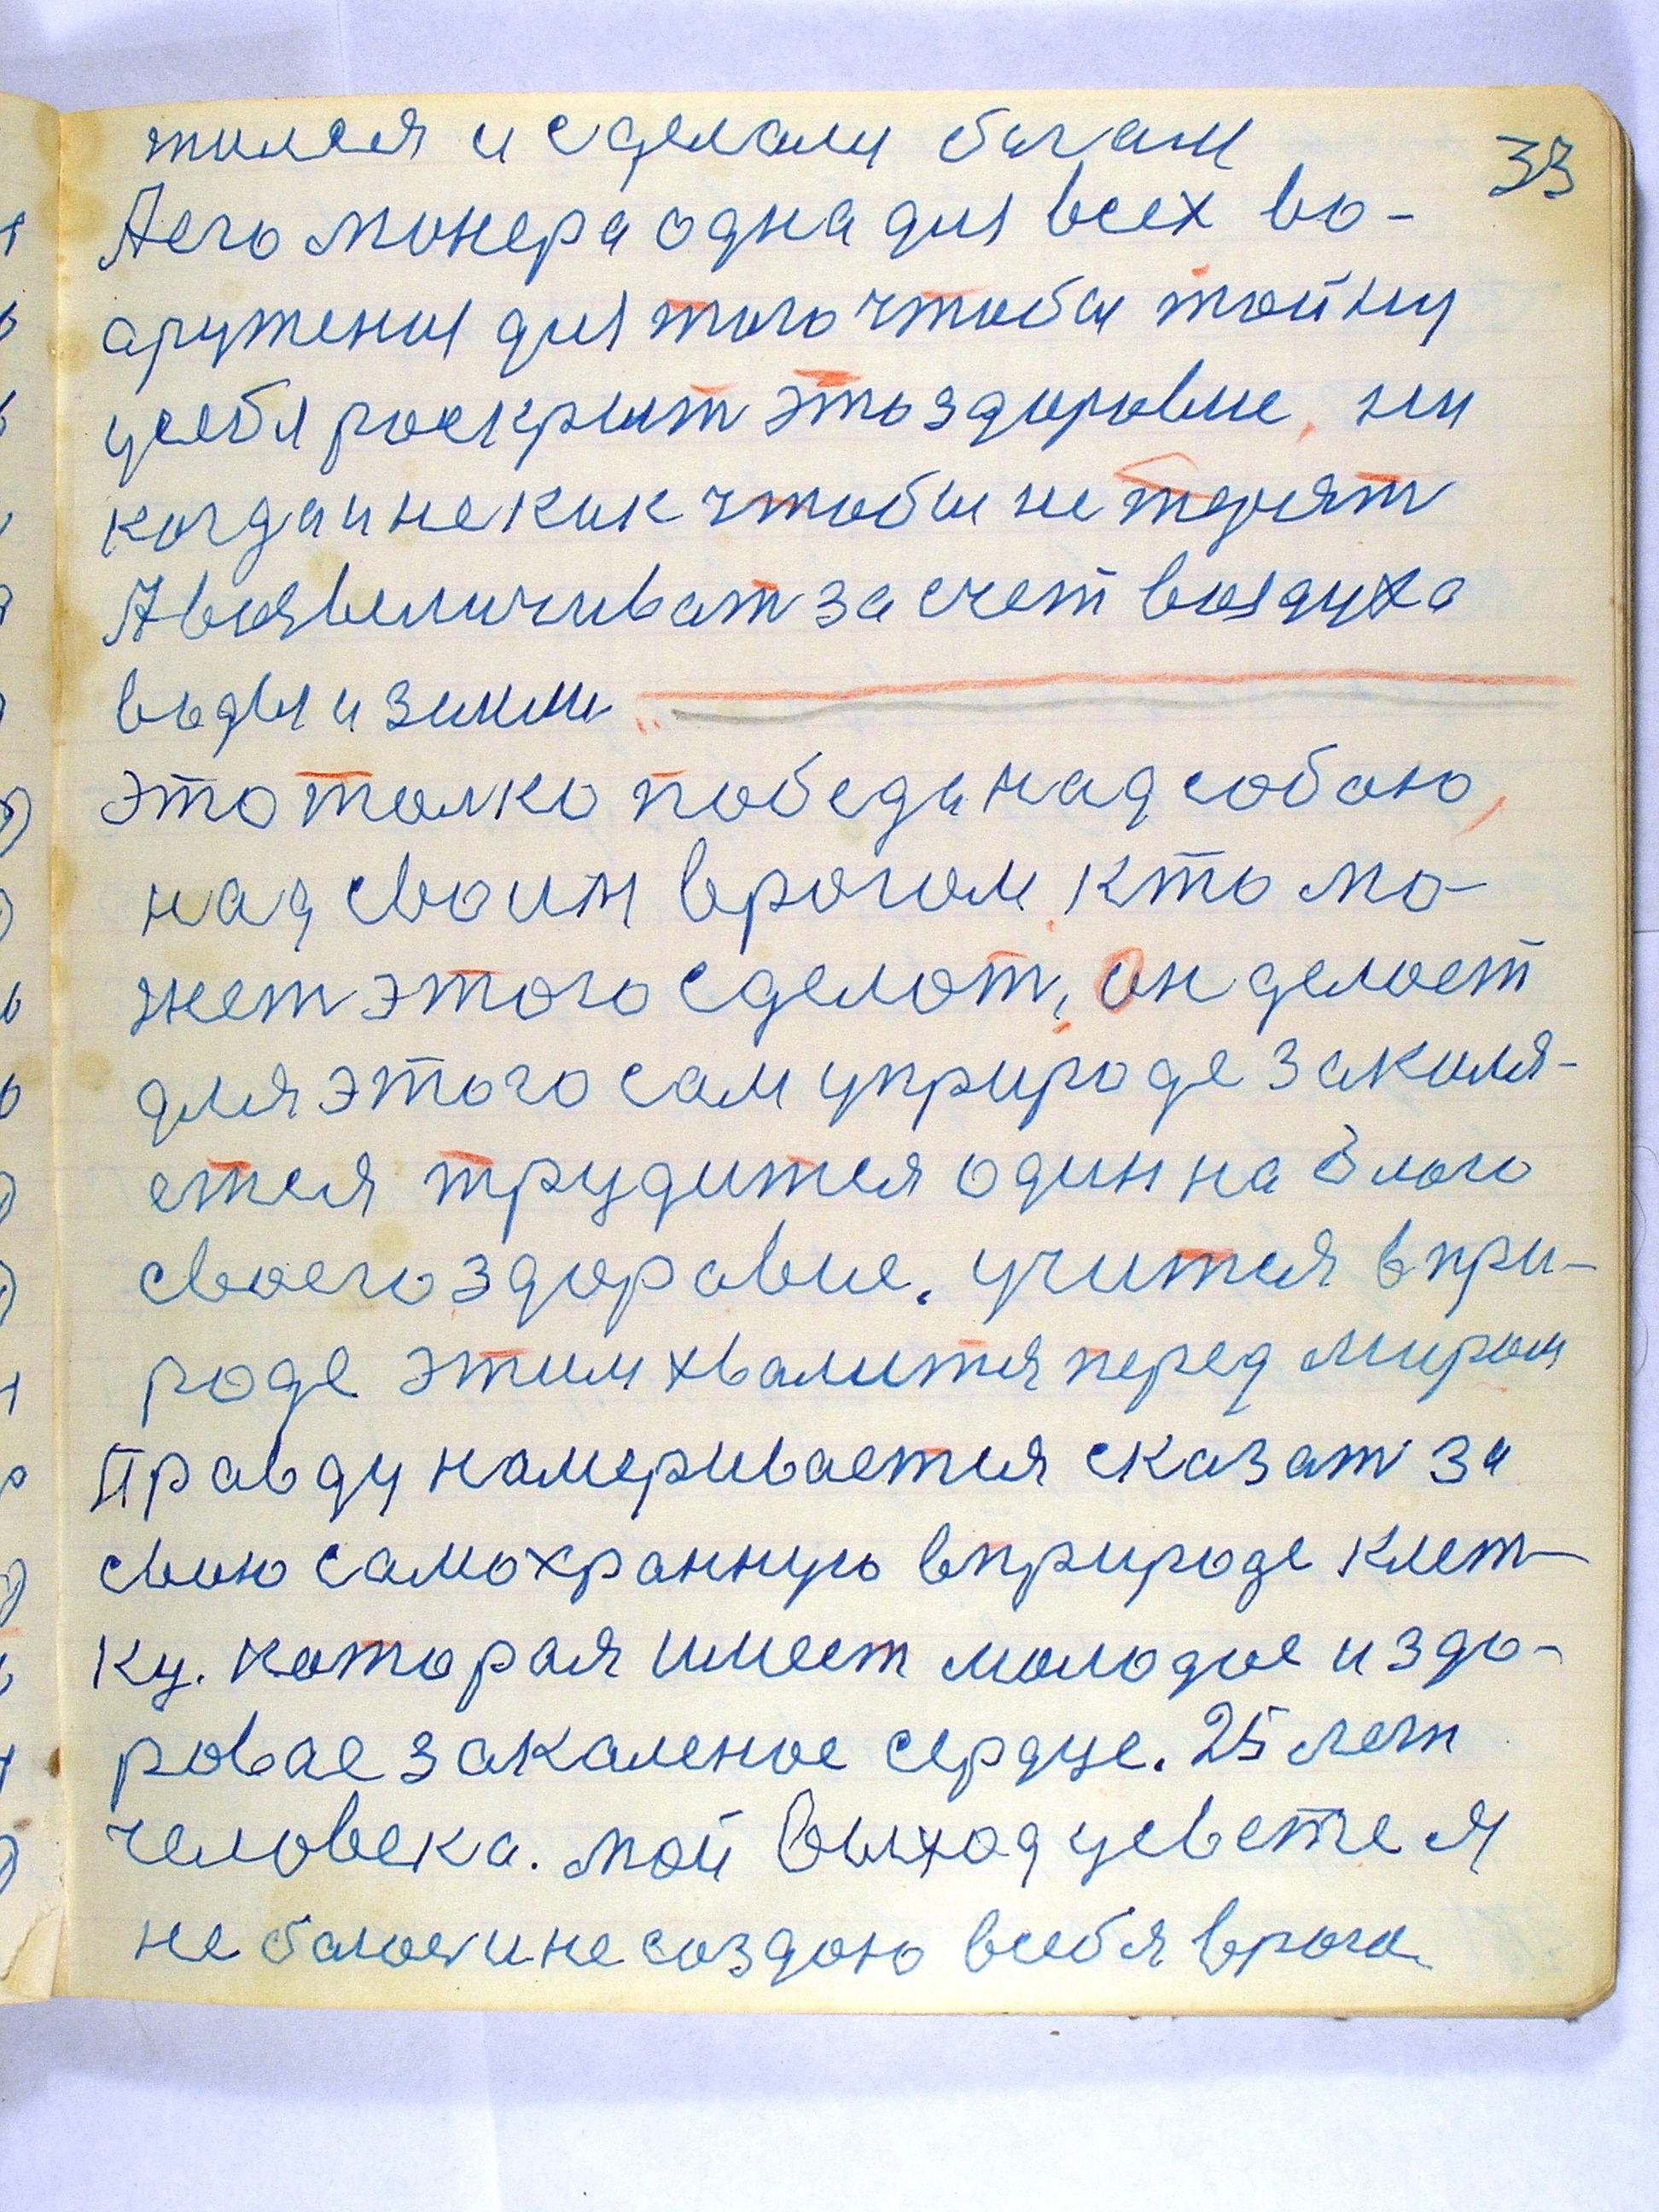 33
тился и сделали богам
Аего монера одна для всех во-
аружения для того чтобы тайну
усебя роскрыт это здоровие, ни
когда и не как чтобы не терят
Авоявеличиват за счет воздуха
воды и земли
это толко победа над собою,
над своим врогом, кто мо-
жет этого сделат, он делает
для этого сам уприроде закаля-
ется трудится один на благо
своего здоровие. учится впри-
роде этим хвалится перед миром
Правду намеривается сказат за
свою самохранную вприроде клет-
ку. которая имеет молодое издо-
ровае закаленое сердце. 25 лет
человека. мой выход усвете я
не баюся и не создаю всебя врога